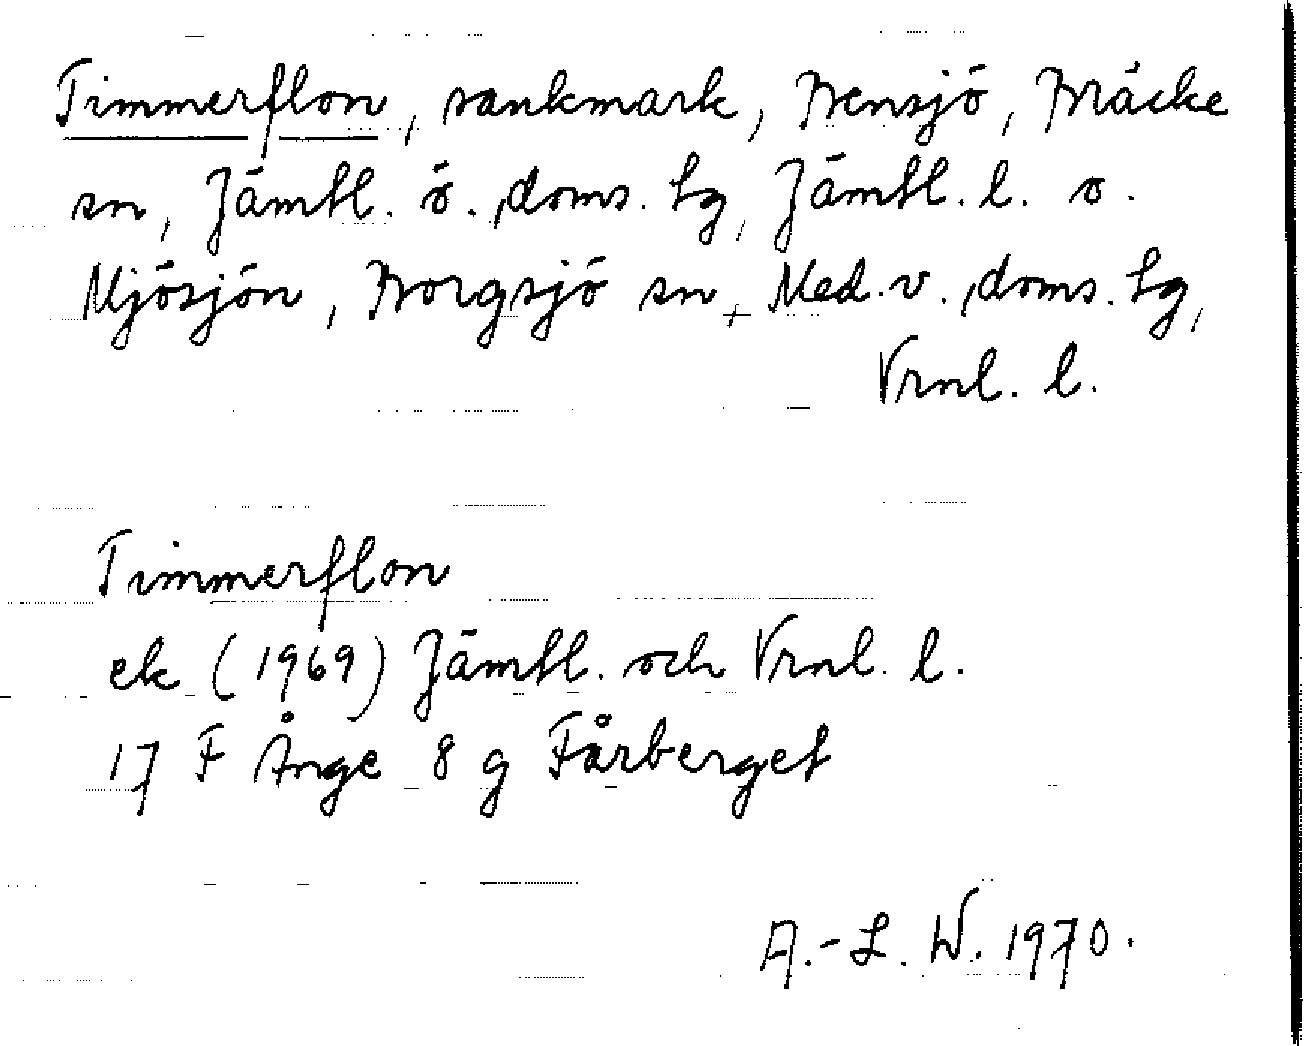 Timmerflon, sankmark, Bensjö, Bräcke
sn, Jämtl. ö. doms. tg, Jämtl. l. o.
Mjösjön, Borgsjö sn, Med. v. doms. tg,
Vrnl. l.
Timmerflon
ek (1969) Jämtl. och Vrnl. l.
17 F Ånge 8 g Fårberget
A.-L. W. 1970.